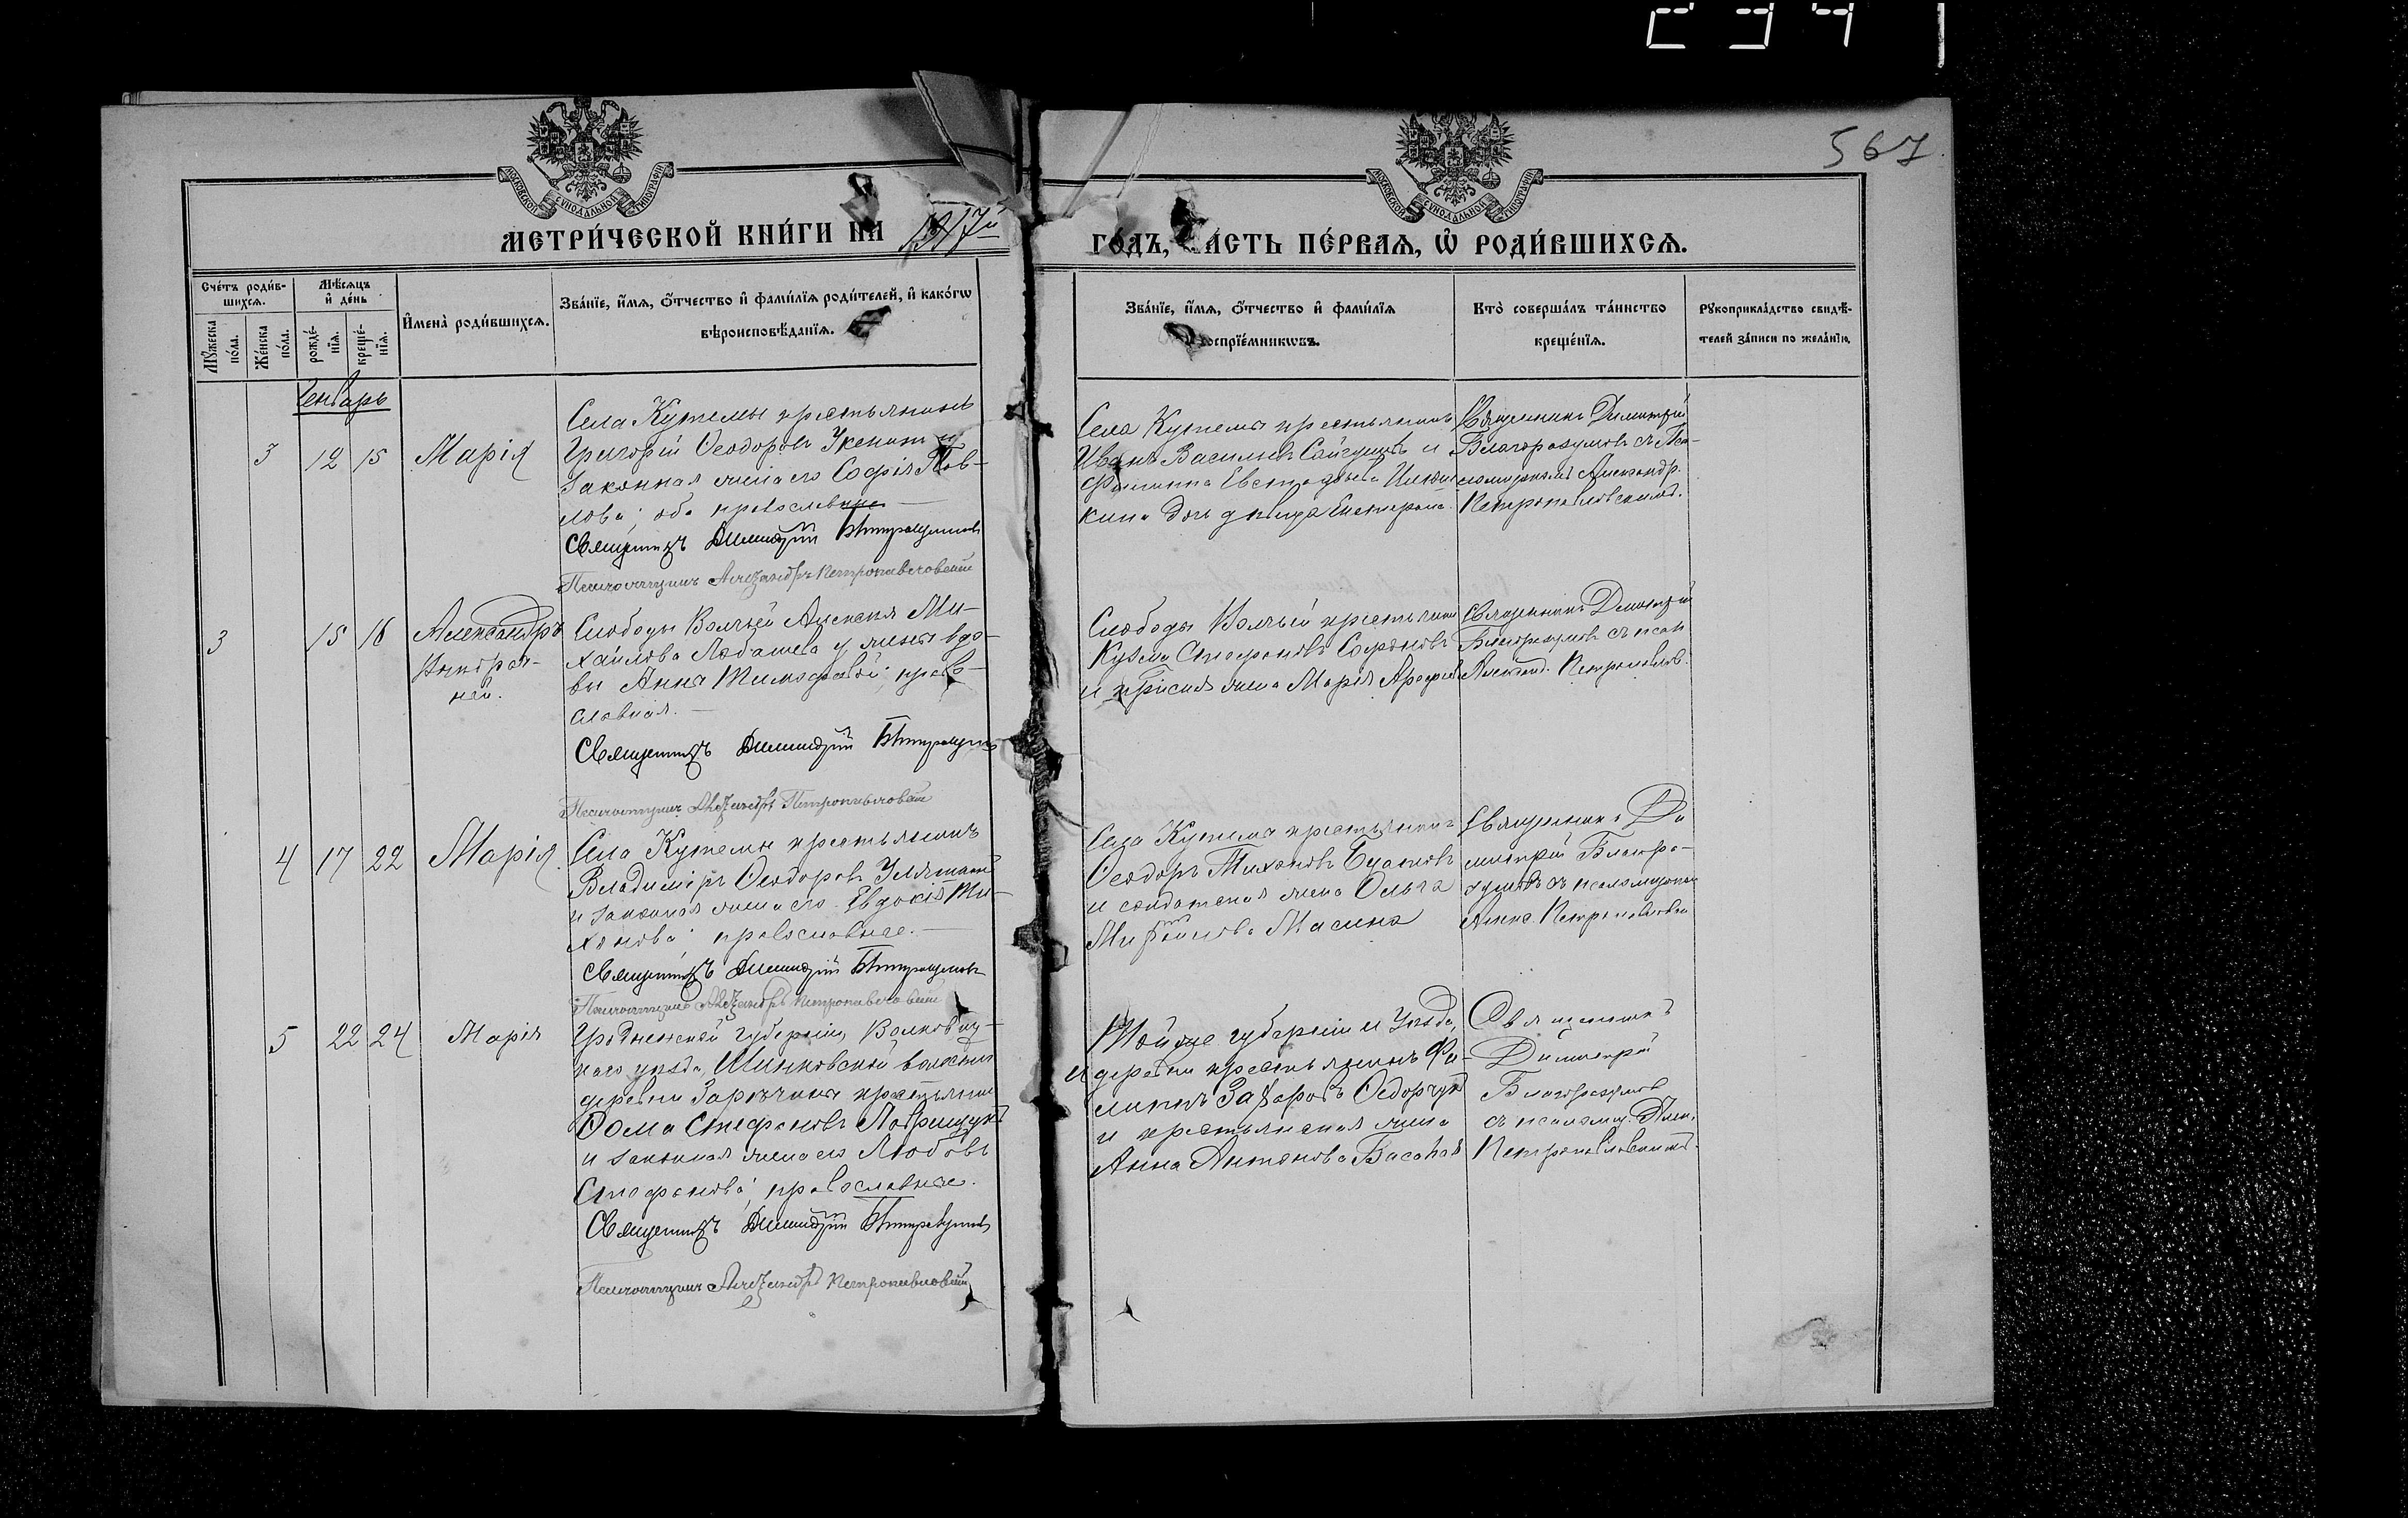 567
МОСКОВСКОЙ СУНОДАЛЬНОЙ ТИПОГРАФІИ
МОСКОВСКОЙ СУНОДАЛЬНОЙ ТИПОГРАФІИ
МЕТРИ́ЧЕСКОЙ КНИ́ГИ НА 1917й
ГО́ДЪ, ЧАСТЬ ПЕ́РВАѦ, Ѡ РОДИ́ВШИХСѦ.
Сче́тъ роди́в-
шихсѧ.
Мѣ́сѧцъ
и҆ де́нь
Мꙋ́жеска
по́ла.
Же́нска
по́ла.
рожде́-
нїѧ.
креще́-
нїѧ.
И҆мена̀ роди́вшихсѧ.
Зва́нїе, и҆́мѧ, ѻ҆́тчество и҆ фами́лїѧ роди́телей, и҆ како́гѡ
вѣроисповѣ́данїѧ.
Зва́нїе, и҆́мѧ, ѻ҆́тчество и҆ фами́лїѧ
воспрїе́мникѡвъ.
Кто̀ соверша́лъ та́инство
креще́нїѧ.
Рꙋкоприкла́дство свидѣ́-
телей за́писи по жела́нїю.
Январь
3 12 15 Марія
Села Кутемы крестьянинъ
Григорій Ѳеодоровъ и
законная жена его Софія Пав-
лова; оба православные
Священникъ Димитрій Благоразумовъ
Псаломщикъ Александръ Петропавловскій
Села Кутемы крестьянинъ
Иванъ Васильевъ и
дочь дѣвица Екатерина
Священникъ Димитрій
Благоразумовъ съ Пса-
ломщикомъ Александр.
Петропавловскимъ.
3 15 16 Александръ
Слободы Волчьей Алексія Ми-
хайлова Лобашева у жены вдо-
вы Анна Тимофеева; право-
славная.
Священникъ Димитрій Благоразумовъ
Псаломщикъ Александръ Петропавловскій
Слободы Волчьей крестьянинъ
Кузма Стефановъ Софоновъ
и жена Марія Арефьева
Священникъ Димитрій
Благоразумовъ съ псал
Александ. Петропавлов.
4 17 22 Марія
Села Кутемы крестьянинъ
Владиміръ Ѳеодоровъ
и законная жена его Евдокія Ти-
хонова; православные.
Священникъ Димитрій Благоразумовъ
Псаломщикъ Александръ Петропавловскій
Села Кутема крестьянинъ
Ѳеодоръ Тихоновъ
и солдатская жена Ольга
Масина
Священникъ Ди
митрій Благора-
зумовъ съ псаломщикомъ
Петропавловскимъ
5 22 24 Марія
Гродненской губерніи, Волковыс-
каго уѣзда, волости
деревни Зарѣчаны крестьянинъ
Ѳома Стефановъ Лаврищукъ
и законная жена его Любовь
Стефанова; православные.
Священникъ Димитрій Благоразумовъ
Псаломщикъ Александръ Петропавловскій
Той же губерніи и уѣзда,
и деревни крестьянинъ Фи-
липпъ Захаровъ Ѳедорчукъ
и крестьянская жена
Анна Антонова
Священникъ
Димитрій
Благоразумовъ
съ псаломщ. Алек.
Петропавловскимъ.